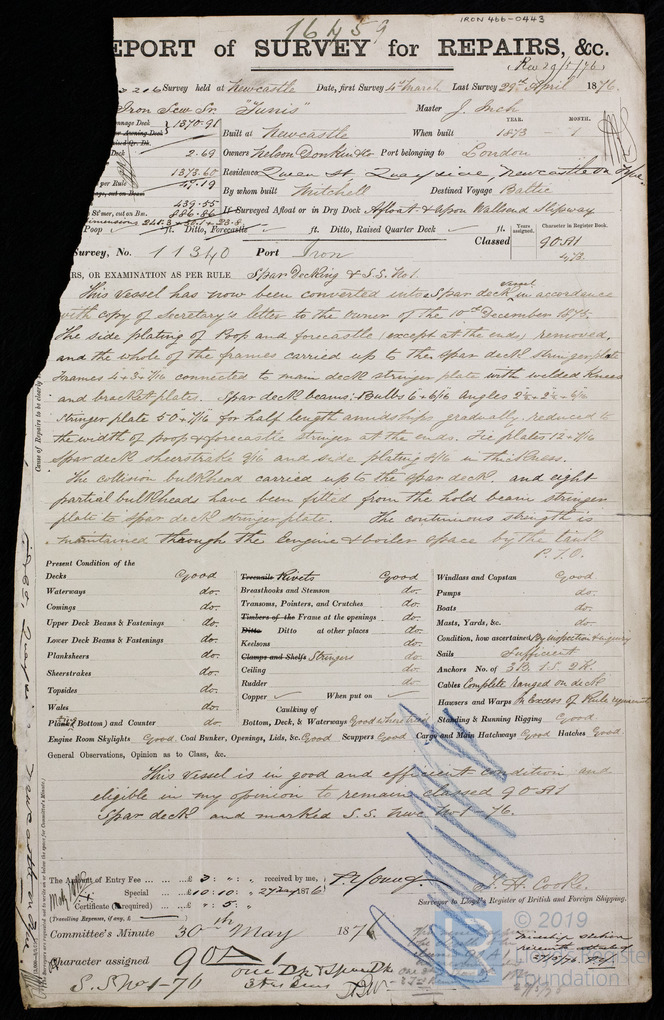 16459
IRON 466-0443
EPORT of SURVEY for REPAIRS, &c.
Rec 29/5/76
Survey held at Newcastle Date, first Survey 4th March Last Survey 29th April 1876.
Iron Scw Sr. "Tunis" Master J. Inch
YEAR. MONTH.
1370.91 Built at Newcastle When built 1873 - 1
Deck 2.69 Owners Nelson Donkin & Co Port belonging to London
1373.60 Residence Queen St, Quayside, Newcastle on Tyne.
per Rule 47.19
By whom built Mitchell Destined Voyage Baltic
439.55
886.86 If Surveyed Afloat or in Dry Dock Afloat & upon Wallsend Slipway
Poop ft. Ditto, Forecastle ft. Ditto, Raised Quarter Deck ft.
Years assigned. Character in Register Book.
Classed 90A1
Survey, No. 11340 Port Iron
RS, OR EXAMINATION AS PER RULE Spar Decking & S.S. No 1.
This vessel has now been converted into a Spar deck vessel in accordance
with copy of Secretary's letter to the owner of the 10th December 1875.
The side plating of Poop and forecastle (except at the ends) removed,
and the whole of the frames carried up to the spar deck stringer plate
Frames 4 x 3 x 7/16 connected to main deck stringer plate with welded knees
and bracket plates. Spar deck beams: Bulbs 6 x 6/16 angles
Stringer plate 50 x 7/16 for half length amidships gradually reduced to
the width of poop & forecastle stringer at the ends. Tie plates 12 x 7/16
spar deck sheerstrake 9/16 and side plating in thickness.
The collision bulkhead carried up to the spar deck, and eight
partial bulkheads have been fitted from the hold beam stringer
plate to spar deck stringer plate. The continuous strength is
maintained through the Engine & boiler space by the tank
P.T.O.
Cause of Repairs to be clearly
Present Condition of the
Decks Good
Waterways do.
Comings do.
Upper Deck Beams & Fastenings do.
Lower Deck Beams & Fastenings do.
Planksheers do.
Sheerstrakes do.
Topsides do.
Wales do.
Plating (Bottom) and Counter do.
Treenails Rivets Good
Breasthooks and Stemson do.
Transoms, Pointers, and Crutches do.
Timbers of the Frame at the openings do.
Ditto Ditto at other places do.
Keelsons do.
Clamps and Shelfs Stringers do.
Ceiling do.
Rudder do.
Copper When put on
Caulking of
Bottom, Deck, & Waterways Good where tried
Windlass and Capstan Good
Pumps do.
Boats do.
Masts, Yards, &c. do.
Condition, how ascertained By inspection & enquiry
Sails Sufficient
Anchors No. of 3B. 1S. 2K.
Cables Complete ranged on deck
Hawsers and Warps In Excess of Rule requirement
Standing & Running Rigging Good
Engine Room Skylights Good. Coal Bunker, Openings, Lids, &c. Good Scuppers Good Cargo and Main Hatchways Good Hatches Good.
General Observations, Opinion as to Class, &c.
This vessel is in good and efficient condition and
eligible in my opinion to remain classed 90A1
Spar deck and marked S.S. Nwc No 1-76.
The Amount of Entry Fee £ 3 : " : " received by me,
Special £ 10 : 10 : " 27 May 1876
Certificate (if required) £ " : 5 : "
(Travelling Expenses, if any, £ )
T. Young
J. H. Cooke.
Surveyor to Lloyd's Register of British and Foreign Shipping.
Committee's Minute 30th May 1876
Character assigned 90A1
S.S No 1-76 one Dk & Spar Dk
© 2019
Lloyd's Register
Foundation